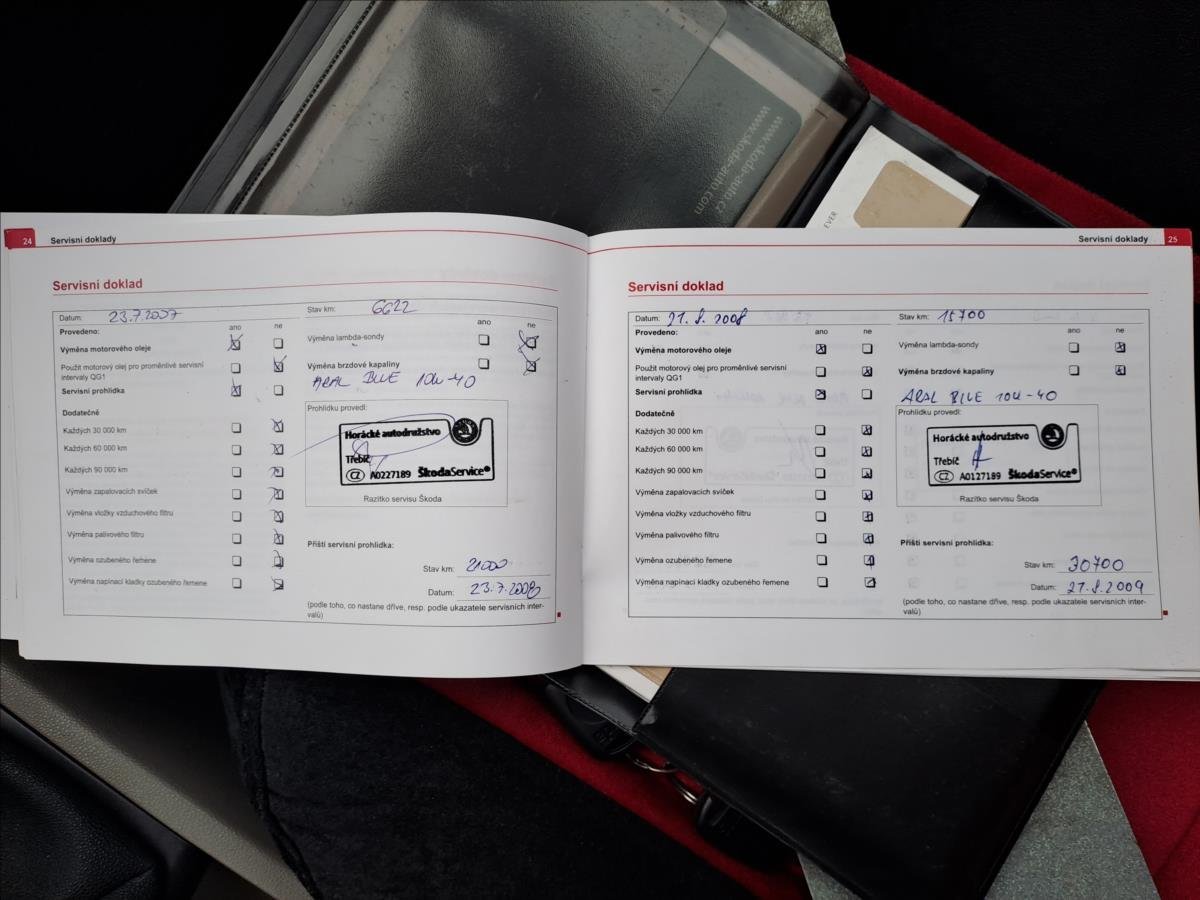 www.skoda-auto.cz
www.skoda-auto.com
EVER
24 Servisní doklady
Servisní doklad
Datum: 23.7.2007
Stav km: 6622
Provedeno: ano ne
ano ne
Výměna motorového oleje
Použit motorový olej pro proměnlivé servisní
intervaly QG1
Servisní prohlídka
Dodatečně
Každých 30 000 km
Každých 60 000 km
Každých 90 000 km
Výměna zapalovacích svíček
Výměna vložky vzduchového filtru
Výměna palivového filtru
Výměna ozubeného řemene
Výměna napínací kladky ozubeného řemene
Výměna lambda-sondy
Výměna brzdové kapaliny
ARAL BLUE 10W-40
Prohlídku provedl:
Horácké autodružstvo
Třebíč
CZ A0227189 ŠkodaService®
Razítko servisu Škoda
Příští servisní prohlídka:
Stav km: 21000
Datum: 23.7.2008
(podle toho, co nastane dříve, resp. podle ukazatele servisních inter-
valů)
Servisní doklady 25
Servisní doklad
Datum: 21.8.2008
Stav km: 15700
Provedeno: ano ne
ano ne
Výměna motorového oleje
Použit motorový olej pro proměnlivé servisní
intervaly QG1
Servisní prohlídka
Dodatečně
Každých 30 000 km
Každých 60 000 km
Každých 90 000 km
Výměna zapalovacích svíček
Výměna vložky vzduchového filtru
Výměna palivového filtru
Výměna ozubeného řemene
Výměna napínací kladky ozubeného řemene
Výměna lambda-sondy
Výměna brzdové kapaliny
ARAL BLUE 10W-40
Prohlídku provedl:
Horácké autodružstvo
Třebíč
CZ A0127189 ŠkodaService®
Razítko servisu Škoda
Příští servisní prohlídka:
Stav km: 30700
Datum: 21.8.2009
(podle toho, co nastane dříve, resp. podle ukazatele servisních inter-
valů)